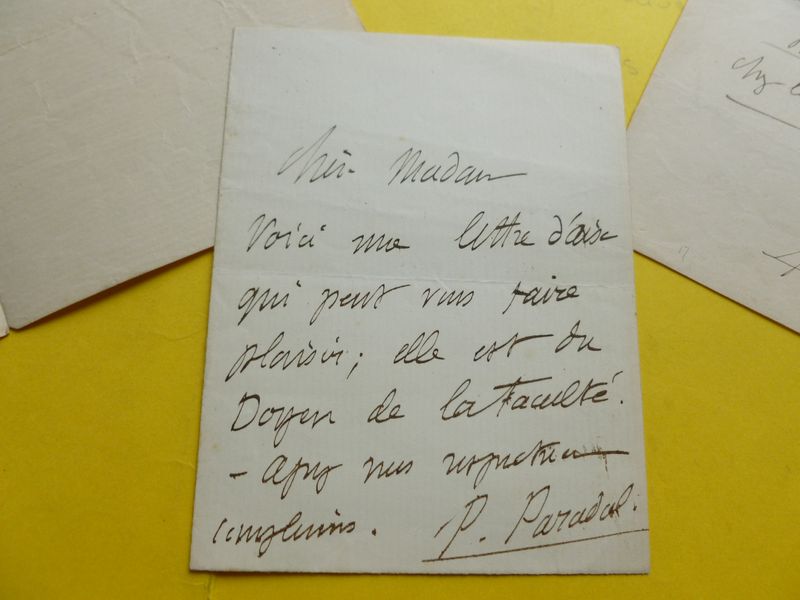 Chère Madame
Voici une lettre d'Aix
qui peut vous faire
plaisir ; elle est du
Doyen de la Faculté.
- Agréez mes respectueux
compliments.
P. Paradol.